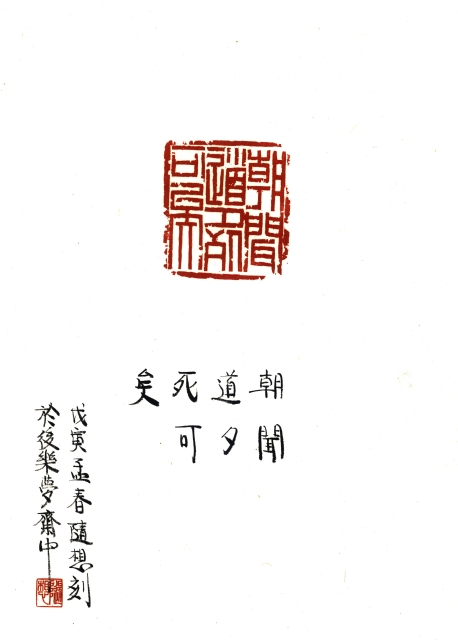 朝聞
道夕死
可矣
朝聞
道夕
死可
矣
戊寅孟春隨想刻
於後樂夢齋中